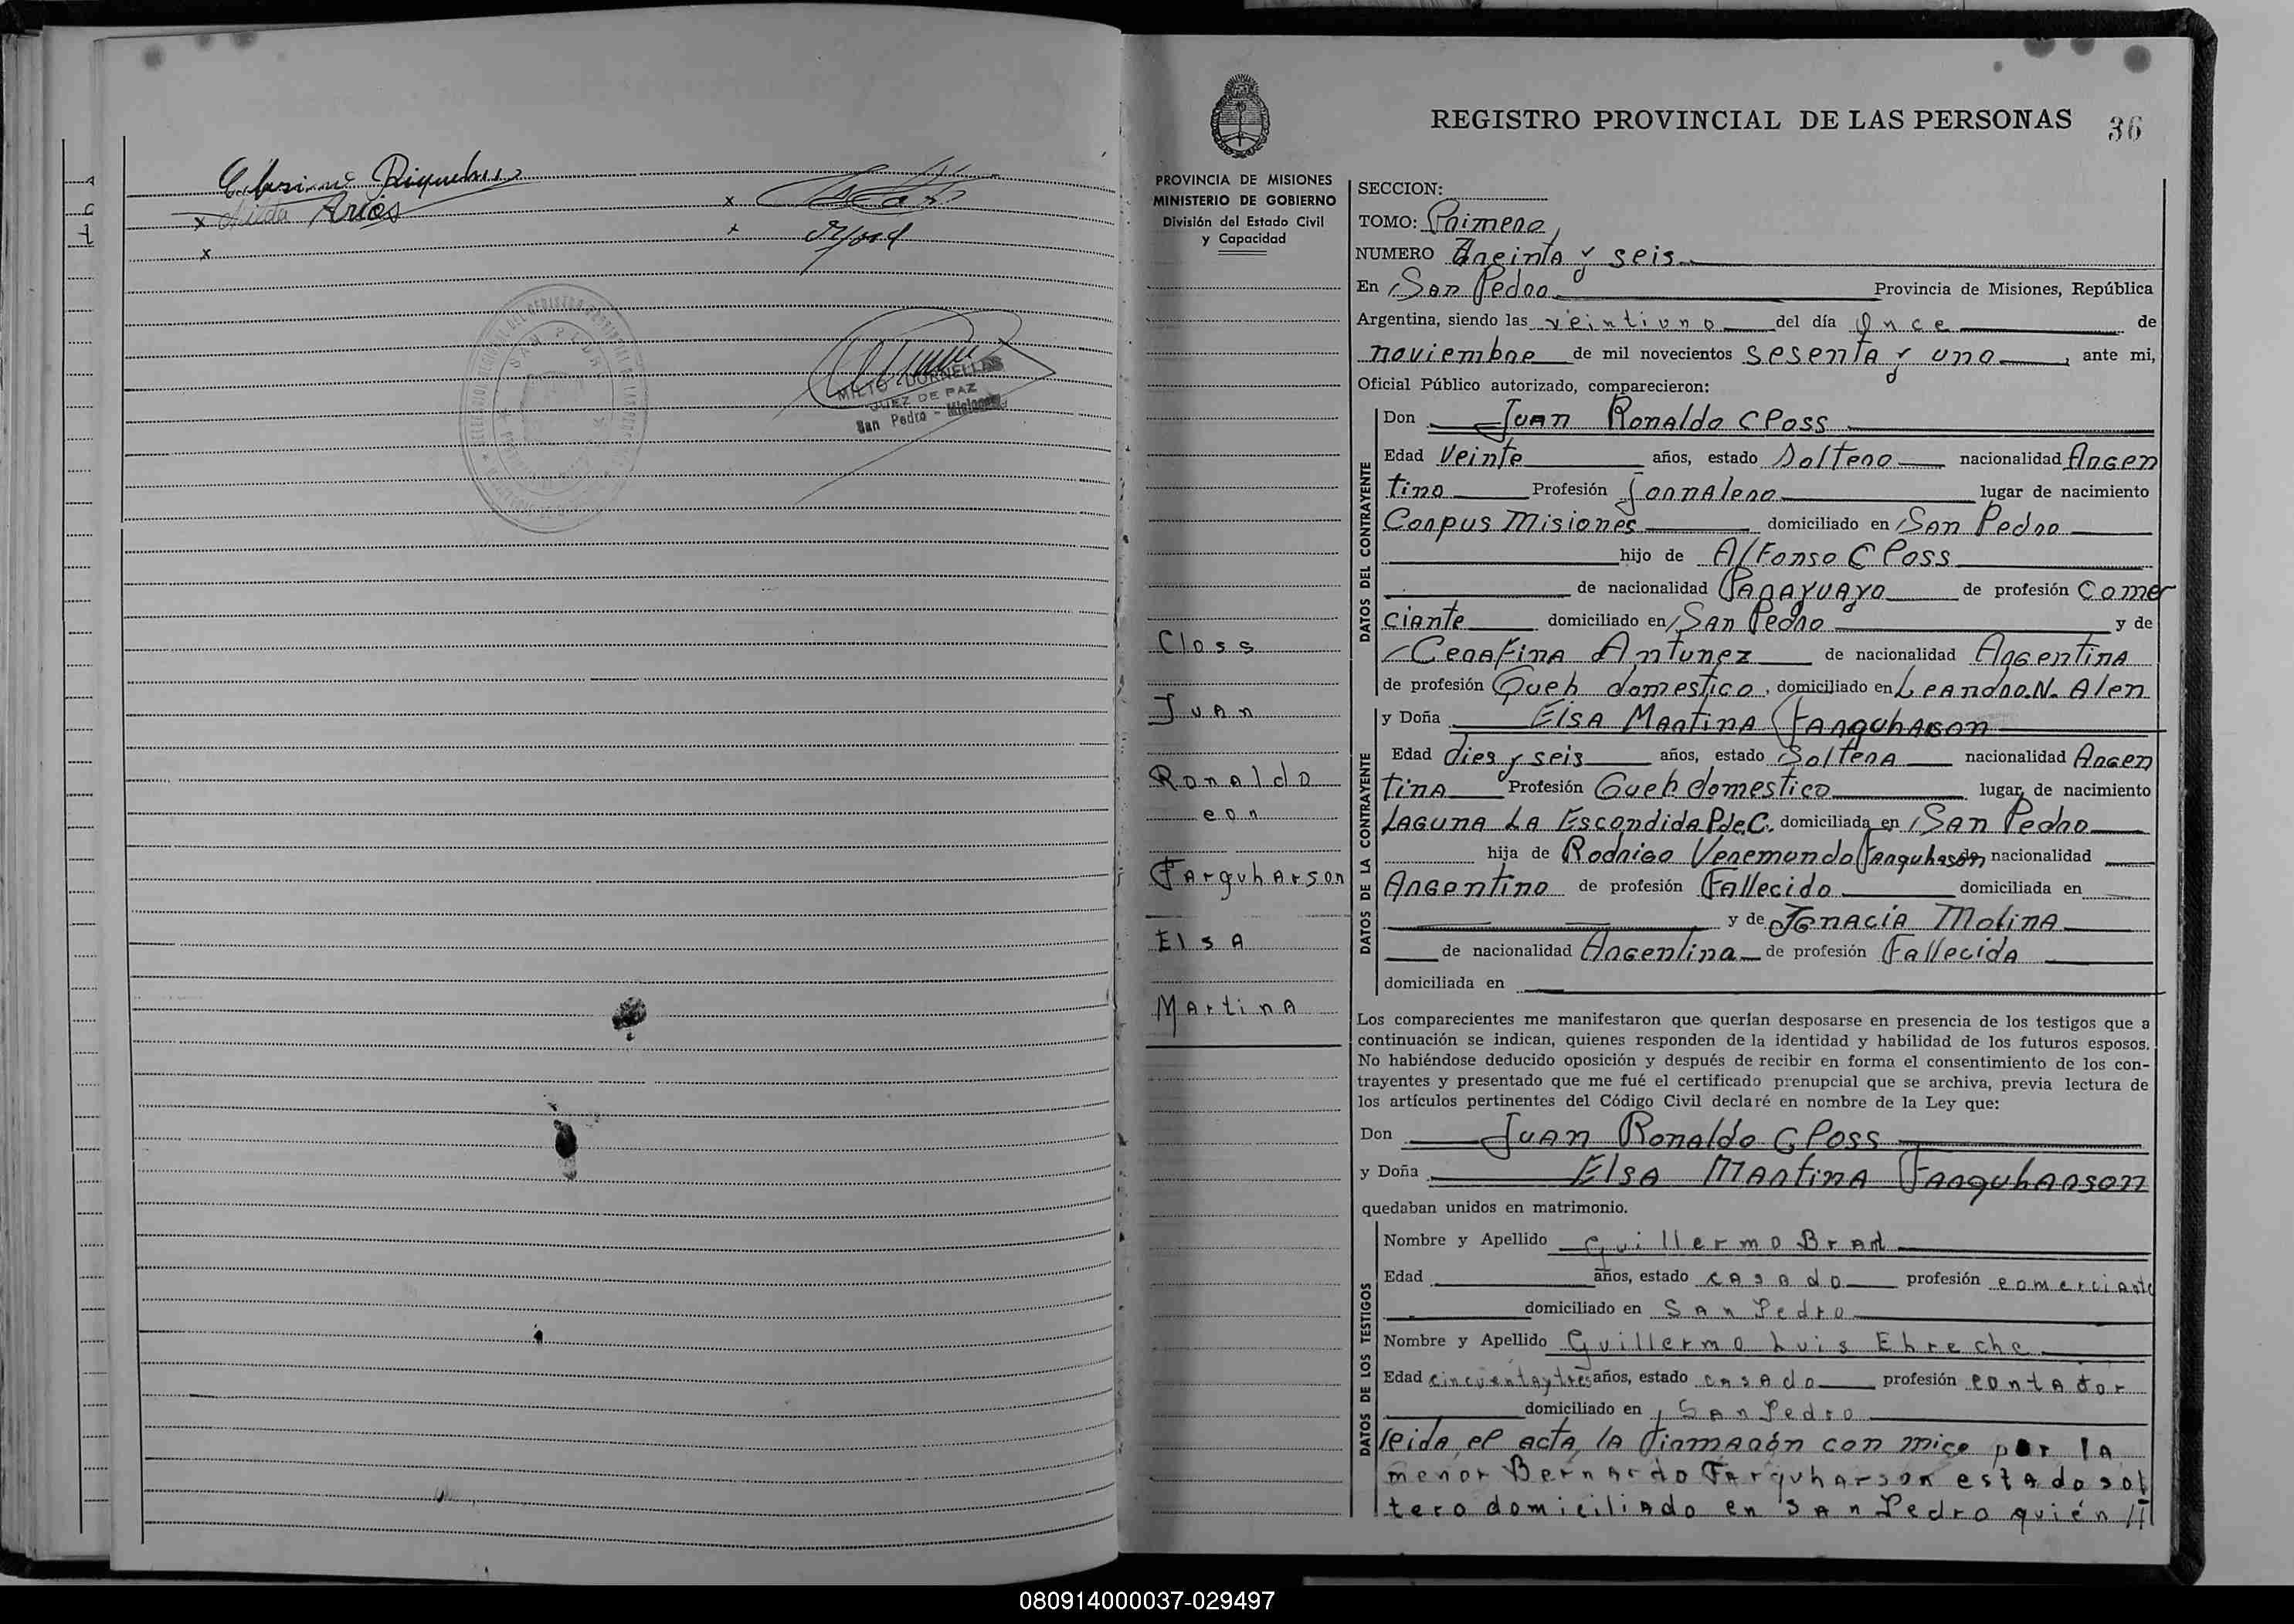 x Arios
x
x
x
SAN PEDRO
MILTO DORNELLAS
JUEZ DE PAZ
San Pedro - Misiones
REGISTRO PROVINCIAL DE LAS PERSONAS 36
PROVINCIA DE MISIONES
MINISTERIO DE GOBIERNO
División del Estado Civil
y Capacidad
Closs
Juan
Ronaldo
con
Farquharson
Elsa
Martina
SECCION:
TOMO: Primero
NUMERO Treinta y seis
En San Pedro Provincia de Misiones, República
Argentina, siendo las veintiuno del día Once de
noviembre de mil novecientos sesenta y uno, ante mi,
Oficial Público autorizado, comparecieron:
DATOS DEL CONTRAYENTE
Don Juan Ronaldo Closs
Edad Veinte años, estado Soltero nacionalidad Argen
tino Profesión Jornalero lugar de nacimiento
Corpus Misiones domiciliado en San Pedro
hijo de Alfonso Closs
de nacionalidad Paraguayo de profesión Comer
ciante domiciliado en San Pedro y de
Cerafina Antunez de nacionalidad Argentina
de profesión Queh domestico, domiciliado en Leandro.N. Alen
DATOS DE LA CONTRAYENTE
y Doña Elsa Martina Farquharson
Edad dies y seis años, estado Soltera nacionalidad Argen
tina Profesión Queh domestico lugar de nacimiento
Laguna La Escondida P.de C. domiciliada en San Pedro
hija de Rodrigo Veremundo Farquharson de nacionalidad
Argentino de profesión Fallecido domiciliada en
y de Ignacia Molina
de nacionalidad Argentina de profesión Fallecida
domiciliada en
Los comparecientes me manifestaron que querían desposarse en presencia de los testigos que a
continuación se indican, quienes responden de la identidad y habilidad de los futuros esposos.
No habiéndose deducido oposición y después de recibir en forma el consentimiento de los con-
trayentes y presentado que me fué el certificado prenupcial que se archiva, previa lectura de
los artículos pertinentes del Código Civil declaré en nombre de la Ley que:
Don Juan Ronaldo Closs
y Doña Elsa Martina Farquharson
quedaban unidos en matrimonio.
DATOS DE LOS TESTIGOS
Nombre y Apellido Guillermo
Edad años, estado casado profesión comerciante
domiciliado en San Pedro
Nombre y Apellido Guillermo Luis Ehreche
Edad cincuentaytres años, estado casado profesión contador
domiciliado en San Pedro
leida el acta, la firmarón con migo por la
menor Bernardo Farquharson estado sol
tero domiciliado en San Pedro quién //
080914000037-029497